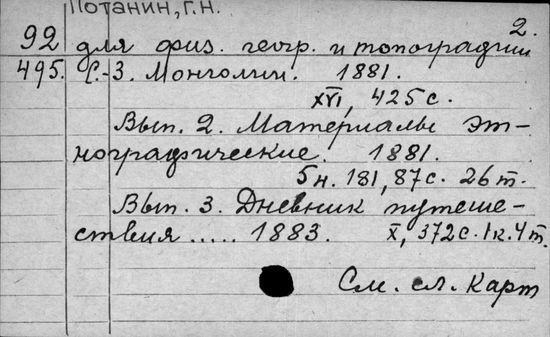 Потанин, Г.Н.
2.
92 для физ. геогр. и топографии
495. С.-З. Монголии. 1881.
XVI, 425 с.
Вып. 2. Материалы эт-
нографические. 1881.
5 н. 181, 87 с. 26 т.
Вып. 3. Дневник путеше-
ствия ..... 1883. X, 372 с. 1 к. 4 т.
См. сл. карт